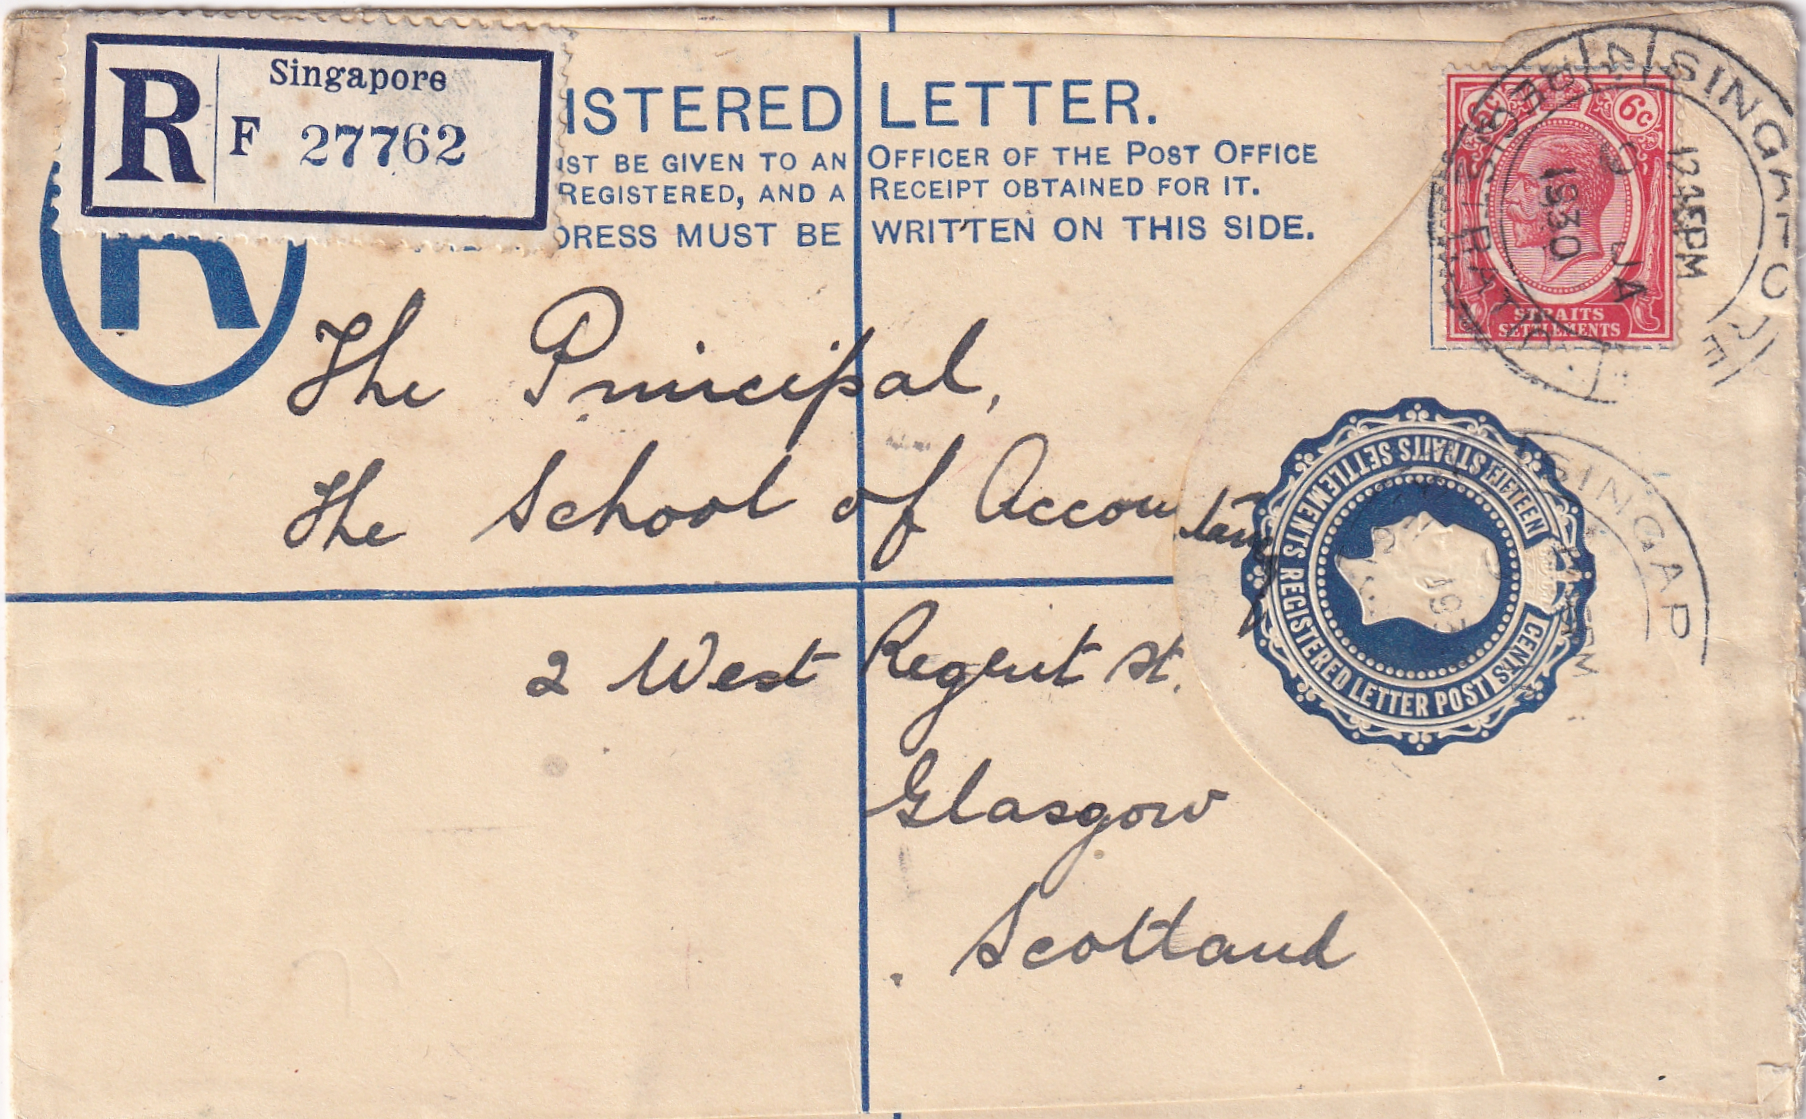 R
Singapore
F 27762
ISTERED LETTER.
ST BE GIVEN TO AN OFFICER OF THE POST OFFICE
REGISTERED, AND A RECEIPT OBTAINED FOR IT.
DRESS MUST BE WRITTEN ON THIS SIDE.
R
6c 6c
STRAITS
SETTLEMENTS
SINGAPORE
REGISTRATION
12.15PM
9 JA
1930
The Principal,
The School of Accountancy
2 West Regent St.
Glasgow
Scotland
STRAITS SETTLEMENTS REGISTERED LETTER POST
FIFTEEN CENTS
SINGAP